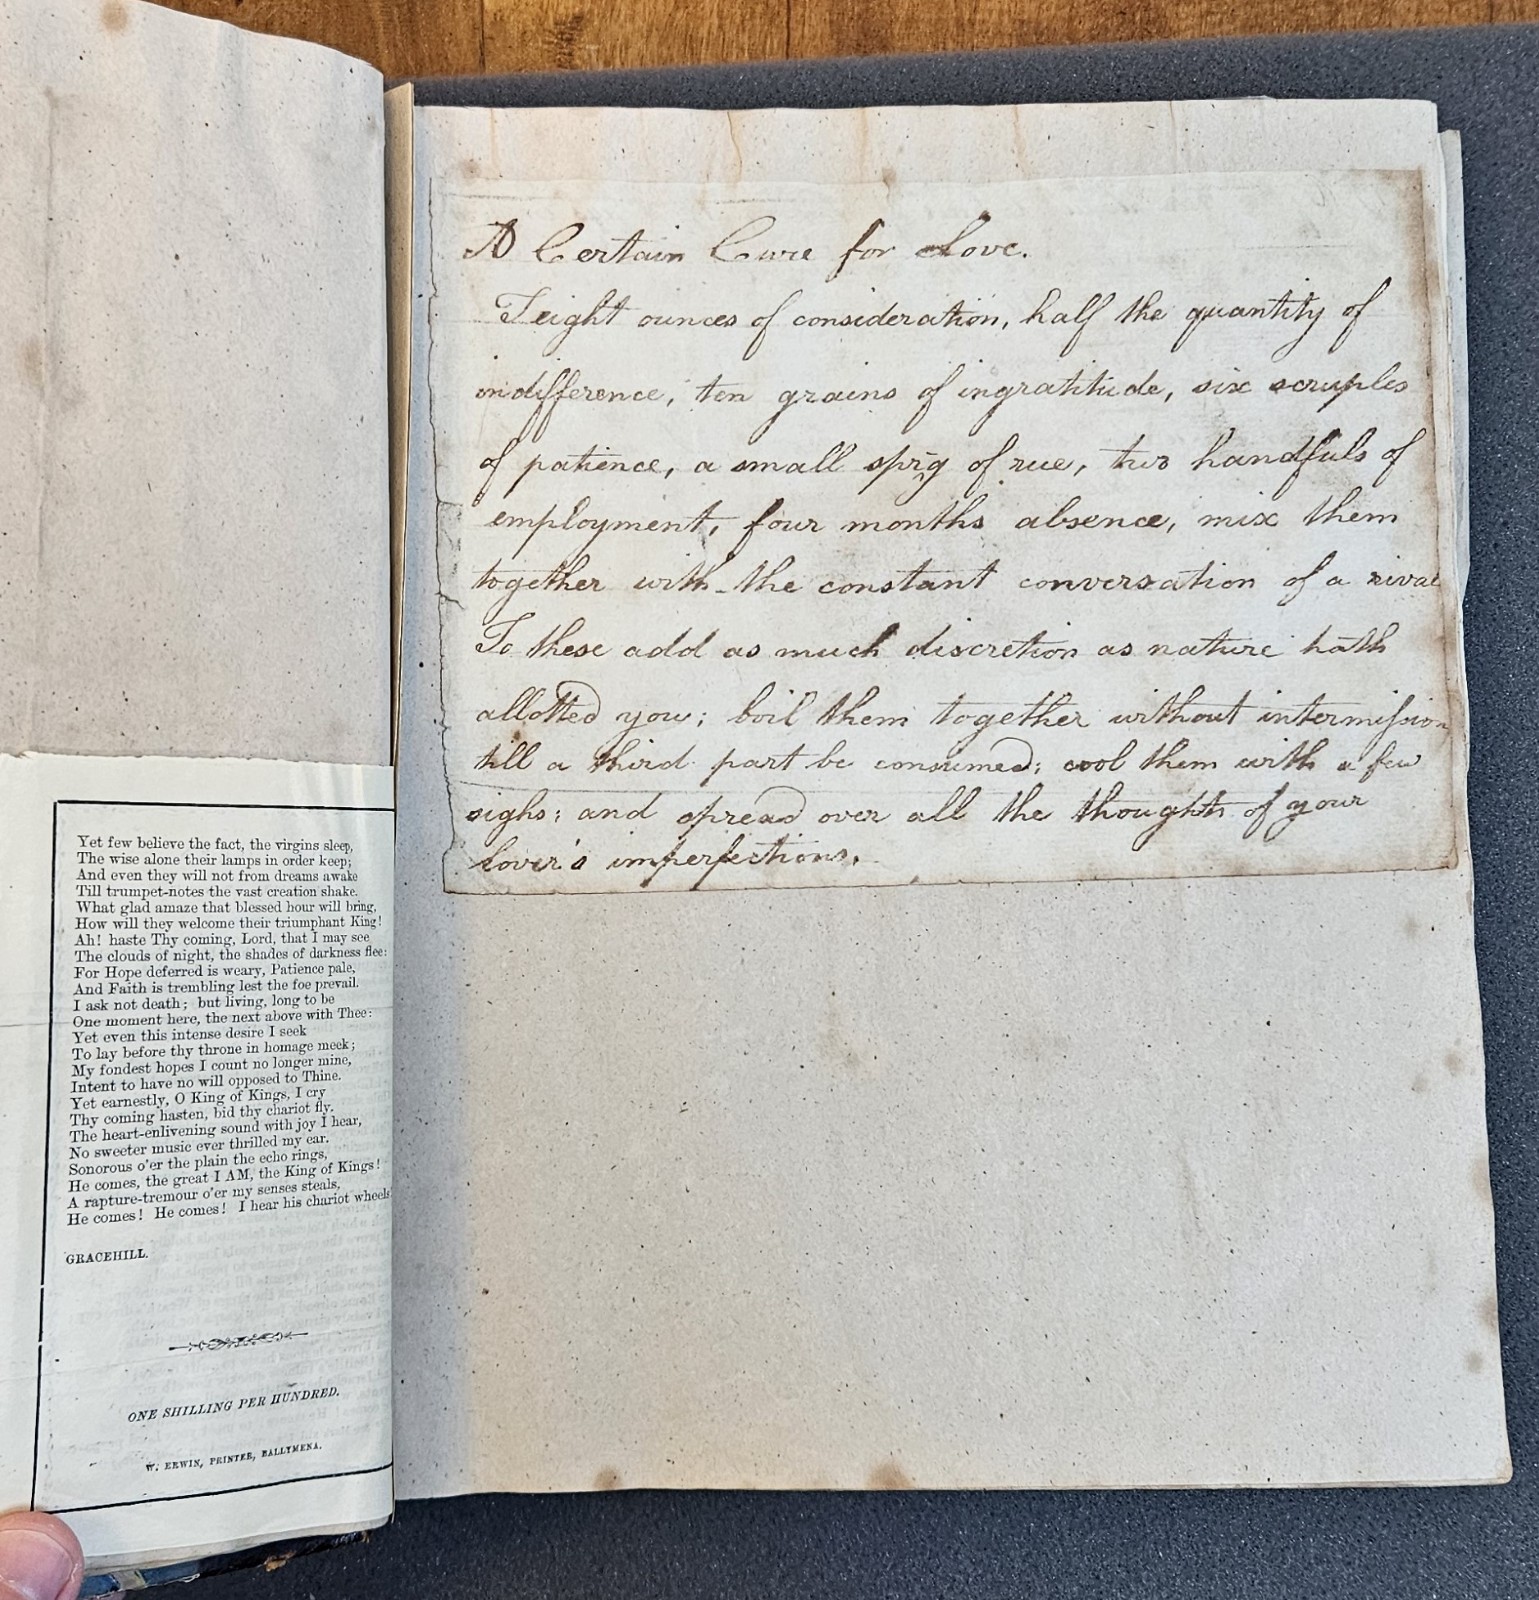 Yet few believe the fact, the virgins sleep,
The wise alone their lamps in order keep;
And even they will not from dreams awake
Till trumpet-notes the vast creation shake.
What glad amaze that blessed hour will bring,
How will they welcome their triumphant King!
Ah! haste Thy coming, Lord, that I may see
The clouds of night, the shades of darkness flee:
For Hope deferred is weary, Patience pale,
And Faith is trembling lest the foe prevail.
I ask not death; but living, long to be
One moment here, the next above with Thee:
Yet even this intense desire I seek
To lay before thy throne in homage meek;
My fondest hopes I count no longer mine,
Intent to have no will opposed to Thine.
Yet earnestly, O King of Kings, I cry
Thy coming hasten, bid thy chariot fly.
The heart-enlivening sound with joy I hear,
No sweeter music ever thrilled my ear.
Sonorous o'er the plain the echo rings,
He comes, the great I AM, the King of Kings!
A rapture-tremour o'er my senses steals,
He comes! He comes! I hear his chariot wheels
GRACEHILL.
ONE SHILLING PER HUNDRED.
W. ERWIN, PRINTER, BALLYMENA.
A Certain Cure for Love.
eight ounces of consideration, half the quantity of
indifference, ten grains of ingratitude, six scruples
of patience, a small sprig of rue, two handfuls of
employment, four months absence, mix them
together with the constant conversation of a rival
To these add as much discretion as nature hath
allotted you; boil them together without intermission
till a third part be consumed; cool them with a few
sighs; and spread over all the thoughts of your
lover's imperfections.